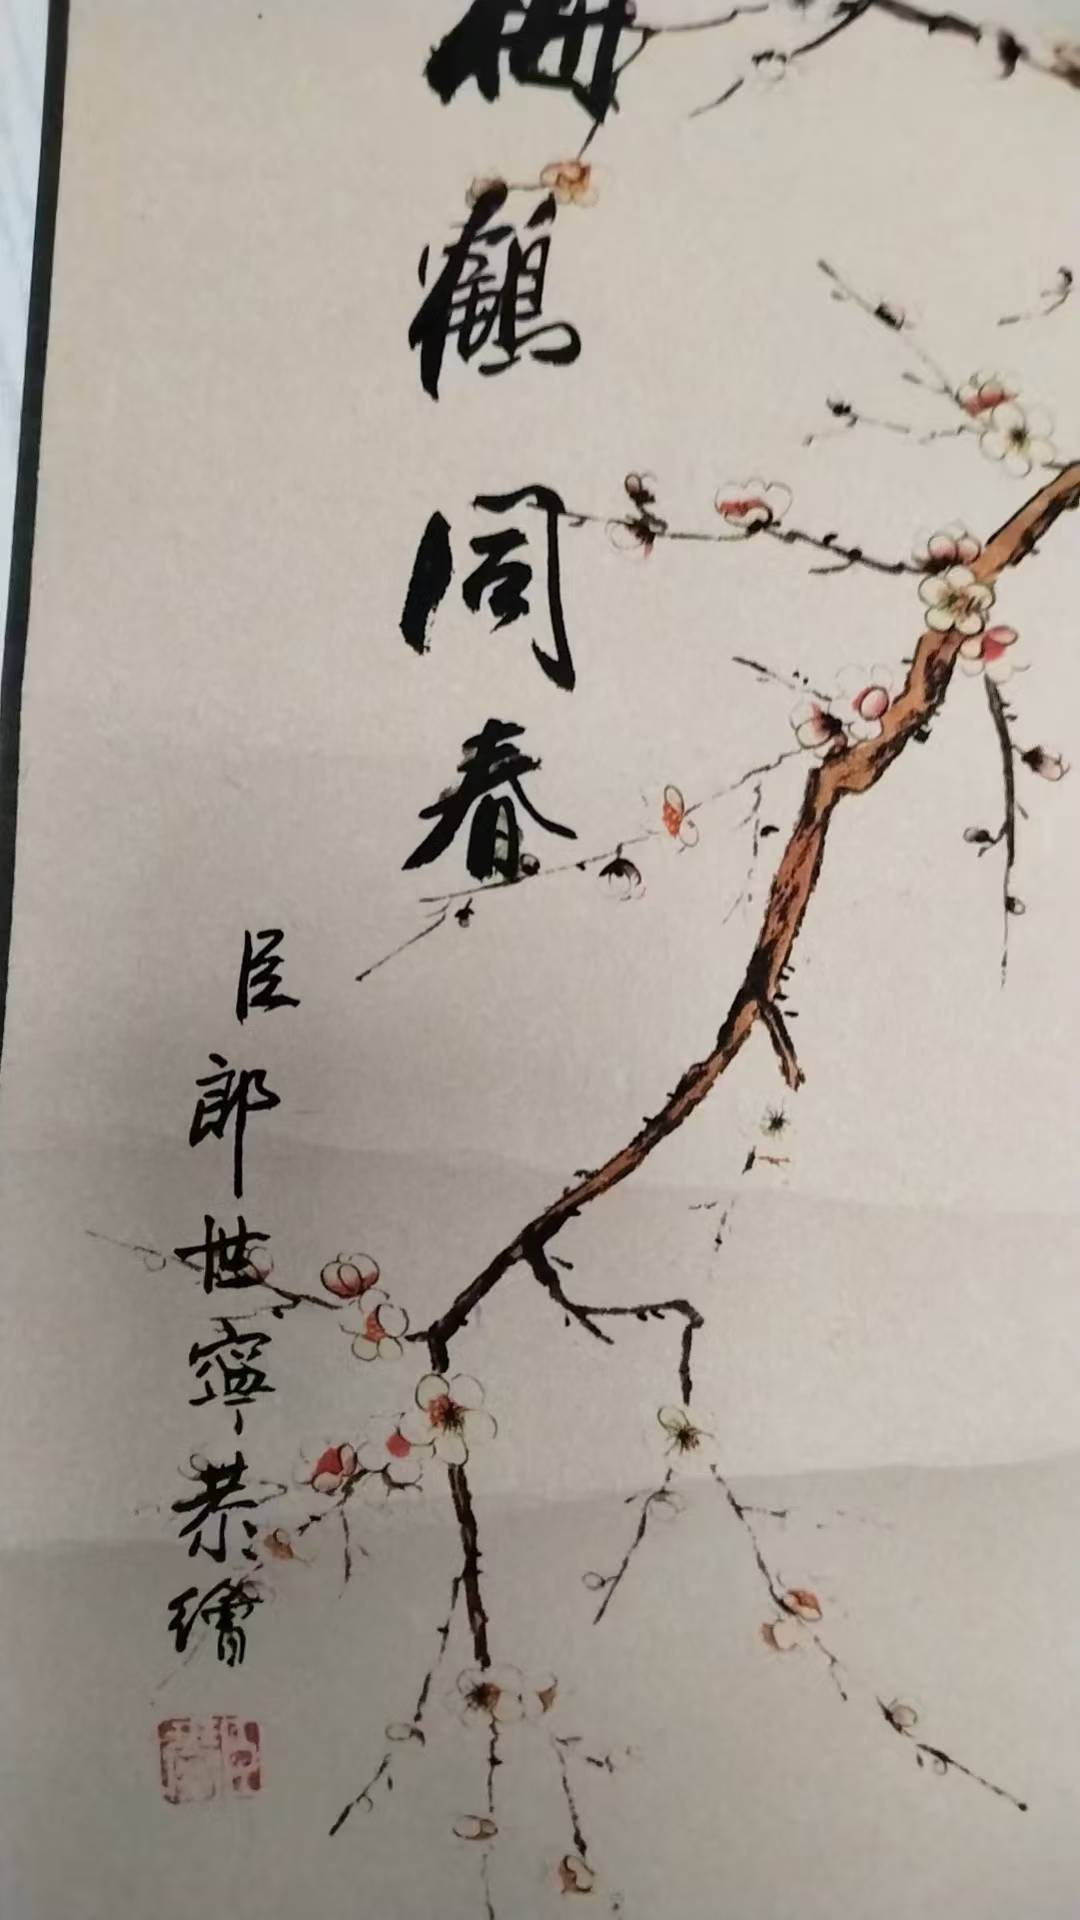 鶴同春
臣郎世寧恭繪